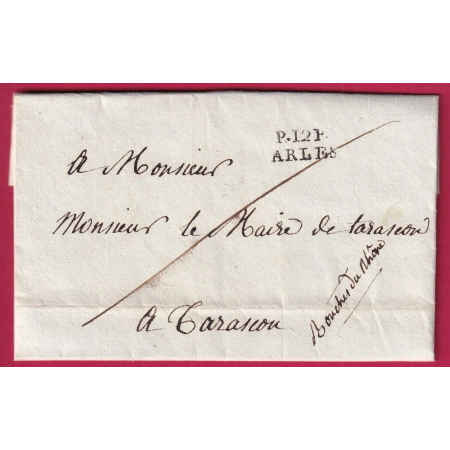 P.12P.
ARLES
A Monsieur
Monsieur le Maire de tarascon
A Tarascon
Bouches du Rhône